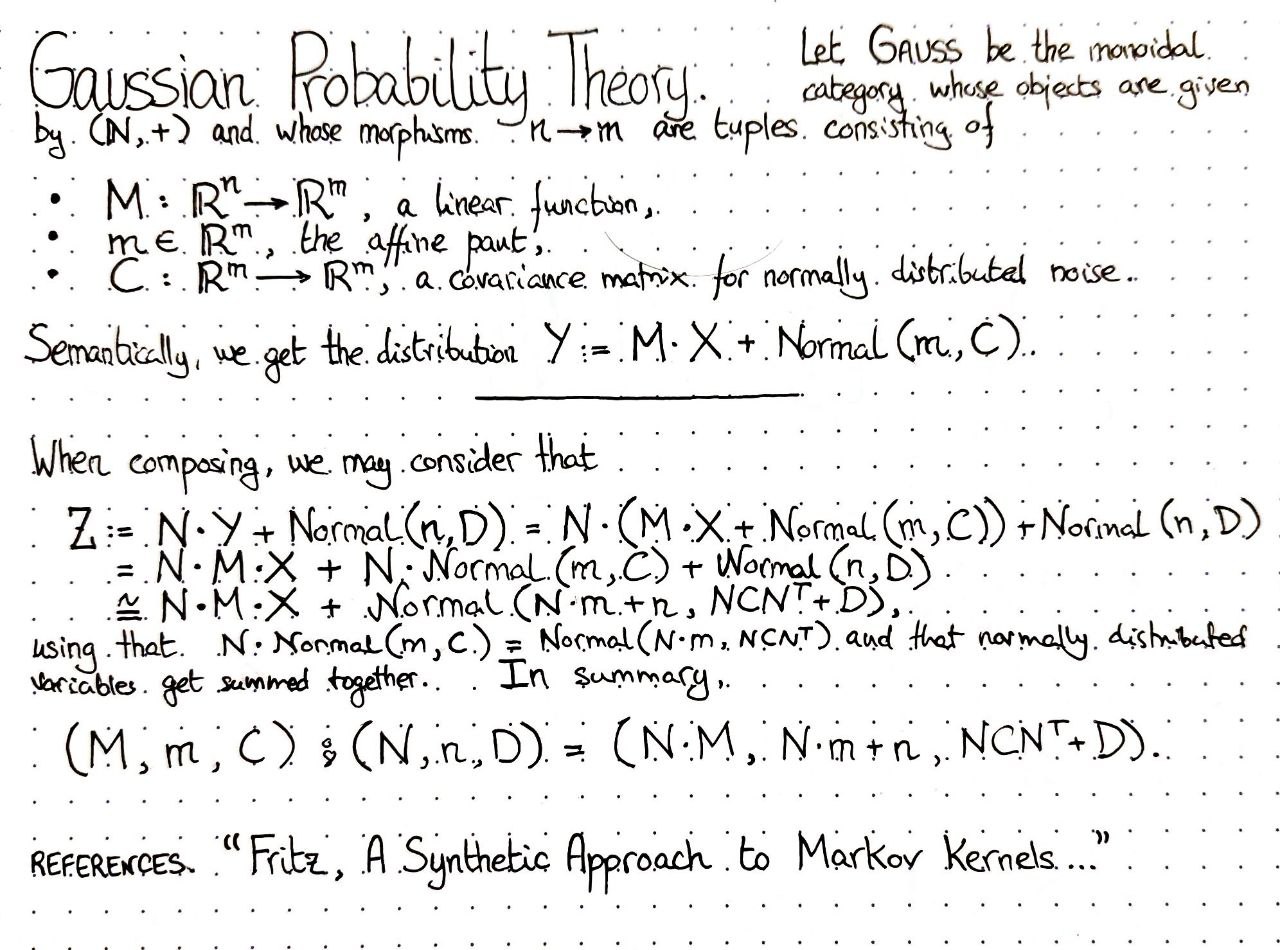 Gaussian Probability Theory. Let GAUSS be the monoidal
category whose objects are given
by (ℕ, +) and whose morphisms n → m are tuples consisting of
• M : ℝⁿ → ℝᵐ, a linear function,
• m ∈ ℝᵐ, the affine part,
• C : ℝᵐ → ℝᵐ, a covariance matrix for normally distributed noise.
Semantically, we get the distribution Y := M · X + Normal (m, C).
When composing, we may consider that
Z := N · Y + Normal (n, D) = N · (M · X + Normal (m, C)) + Normal (n, D)
= N · M · X + N · Normal (m, C) + Normal (n, D)
≅ N · M · X + Normal (N · m + n, NCNᵀ + D),
using that N · Normal (m, C) = Normal (N · m, NCNᵀ) and that normally distributed
variables get summed together. In summary,
(M, m, C) ⨾ (N, n, D) = (N · M, N · m + n, NCNᵀ + D).
REFERENCES. "Fritz, A Synthetic Approach to Markov Kernels..."